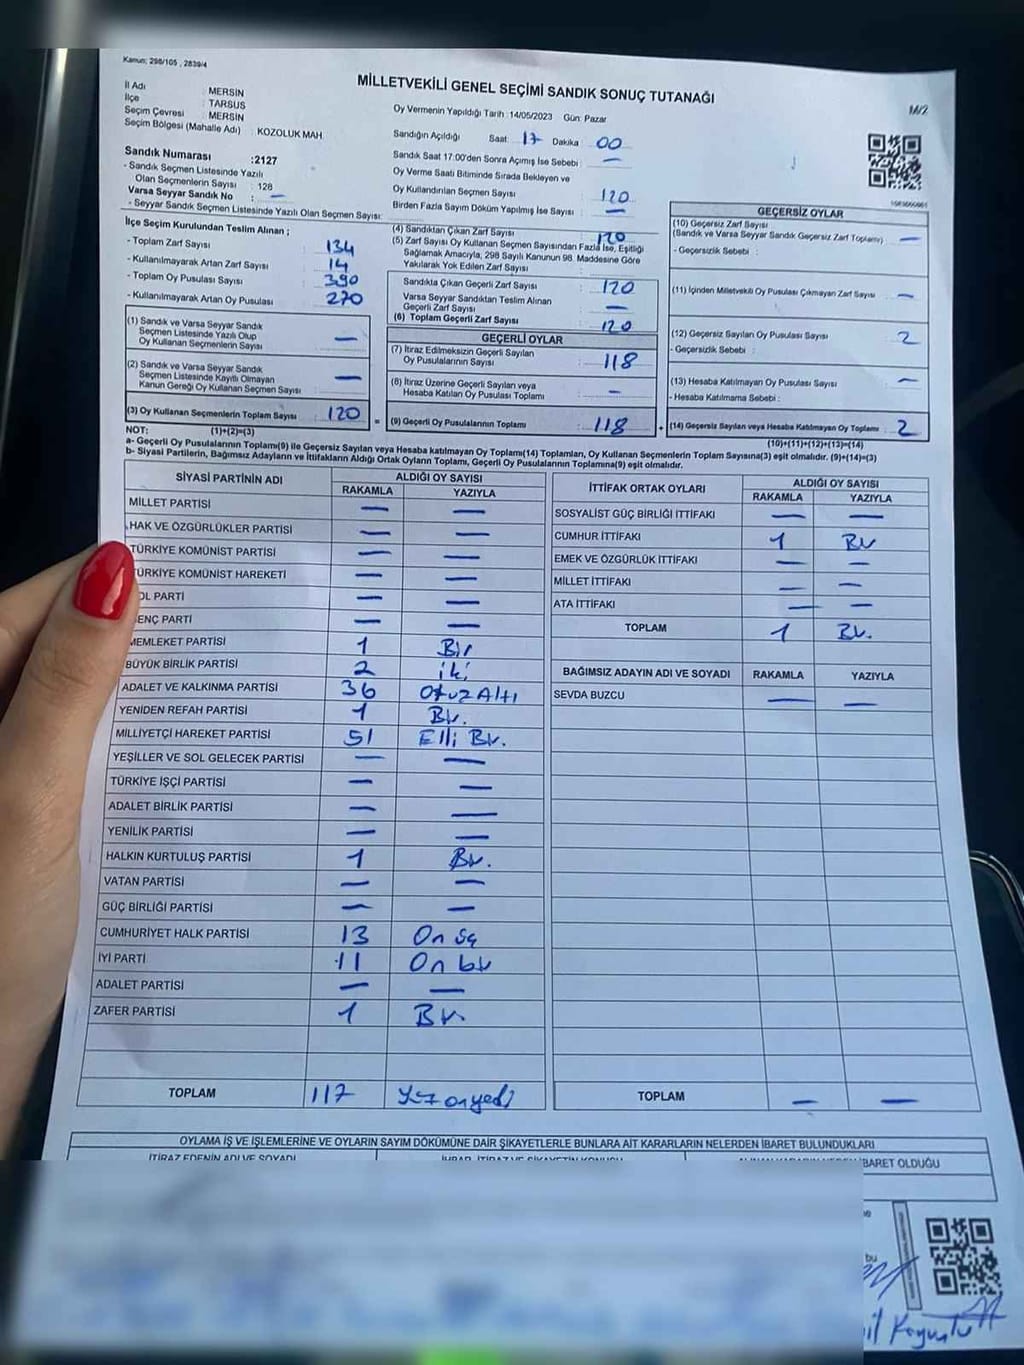 Kanun; 298/105 , 2839/4
MİLLETVEKİLİ GENEL SEÇİMİ SANDIK SONUÇ TUTANAĞI
M/2
İl Adı : MERSİN
İlçe : TARSUS
Seçim Çevresi : MERSİN
Seçim Bölgesi (Mahalle Adı) : KOZOLUK MAH.
Oy Vermenin Yapıldığı Tarih :14/05/2023 Gün: Pazar
Sandığın Açıldığı Saat : 17 Dakika : 00
Sandık Saat 17:00'den Sonra Açılmış İse Sebebi : —
Oy Verme Saati Bitiminde Sırada Bekleyen ve
Oy Kullandırılan Seçmen Sayısı : 120
Birden Fazla Sayım Döküm Yapılmış İse Sayısı : —
Sandık Numarası :2127
- Sandık Seçmen Listesinde Yazılı
Olan Seçmenlerin Sayısı : 128
Varsa Seyyar Sandık No : —
- Seyyar Sandık Seçmen Listesinde Yazılı Olan Seçmen Sayısı:
İlçe Seçim Kurulundan Teslim Alınan ;
- Toplam Zarf Sayısı : 134
- Kullanılmayarak Artan Zarf Sayısı : 14
- Toplam Oy Pusulası Sayısı : 390
- Kullanılmayarak Artan Oy Pusulası : 270
(1) Sandık ve Varsa Seyyar Sandık
Seçmen Listesinde Yazılı Olup
Oy Kullanan Seçmenlerin Sayısı : —
(2) Sandık ve Varsa Seyyar Sandık
Seçmen Listesinde Kayıtlı Olmayan
Kanun Gereği Oy Kullanan Seçmen Sayısı : —
(3) Oy Kullanan Seçmenlerin Toplam Sayısı : 120
(1)+(2)=(3)
(4) Sandıktan Çıkan Zarf Sayısı : 120
(5) Zarf Sayısı Oy Kullanan Seçmen Sayısından Fazla İse, Eşitliği
Sağlamak Amacıyla, 298 Sayılı Kanunun 98. Maddesine Göre
Yakılarak Yok Edilen Zarf Sayısı :
Sandıkla Çıkan Geçerli Zarf Sayısı : 120
Varsa Seyyar Sandıktan Teslim Alınan
Geçerli Zarf Sayısı : —
(6) Toplam Geçerli Zarf Sayısı : 120
GEÇERLİ OYLAR
(7) İtiraz Edilmeksizin Geçerli Sayılan
Oy Pusulalarının Sayısı : 118
(8) İtiraz Üzerine Geçerli Sayılan veya
Hesaba Katılan Oy Pusulası Toplamı : —
= (9) Geçerli Oy Pusulalarının Toplamı : 118
GEÇERSİZ OYLAR
(10) Geçersiz Zarf Sayısı
(Sandık ve Varsa Seyyar Sandık Geçersiz Zarf Toplamı) : —
- Geçersizlik Sebebi :
(11) İçinden Milletvekili Oy Pusulası Çıkmayan Zarf Sayısı : —
(12) Geçersiz Sayılan Oy Pusulası Sayısı : 2
- Geçersizlik Sebebi :
(13) Hesaba Katılmayan Oy Pusulası Sayısı : —
- Hesaba Katılmama Sebebi :
+ (14) Geçersiz Sayılan veya Hesaba Katılmayan Oy Toplamı : 2
(10)+(11)+(12)+(13)=(14)
NOT:
a- Geçerli Oy Pusulalarının Toplamı(9) ile Geçersiz Sayılan veya Hesaba katılmayan Oy Toplam(14) Toplamları, Oy Kullanan Seçmenlerin Toplam Sayısına(3) eşit olmalıdır. (9)+(14)=(3)
b- Siyasi Partilerin, Bağımsız Adayların ve İttifakların Aldığı Ortak Oyların Toplamı, Geçerli Oy Pusulalarının Toplamına(9) eşit olmalıdır.
SİYASİ PARTİNİN ADI ALDIĞI OY SAYISI
RAKAMLA YAZIYLA
MİLLET PARTİSİ — —
HAK VE ÖZGÜRLÜKLER PARTİSİ — —
TÜRKİYE KOMÜNİST PARTİSİ — —
TÜRKİYE KOMÜNİST HAREKETİ — —
OL PARTİ — —
ENÇ PARTİ — —
MEMLEKET PARTİSİ 1 Bir
BÜYÜK BİRLİK PARTİSİ 2 iki
ADALET VE KALKINMA PARTİSİ 36 Otuz Altı
YENİDEN REFAH PARTİSİ 1 Bir.
MİLLİYETÇİ HAREKET PARTİSİ 51 Elli Bir.
YEŞİLLER VE SOL GELECEK PARTİSİ — —
TÜRKİYE İŞÇİ PARTİSİ — —
ADALET BİRLİK PARTİSİ — —
YENİLİK PARTİSİ — —
HALKIN KURTULUŞ PARTİSİ 1 Bir.
VATAN PARTİSİ — —
GÜÇ BİRLİĞİ PARTİSİ — —
CUMHURİYET HALK PARTİSİ 13 On üç
İYİ PARTİ 11 On bir
ADALET PARTİSİ — —
ZAFER PARTİSİ 1 Bir.
TOPLAM 117 Yüz onyedi
İTTİFAK ORTAK OYLARI ALDIĞI OY SAYISI
RAKAMLA YAZIYLA
SOSYALİST GÜÇ BİRLİĞİ İTTİFAKI — —
CUMHUR İTTİFAKI 1 Bir
EMEK VE ÖZGÜRLÜK İTTİFAKI — —
MİLLET İTTİFAKI — —
ATA İTTİFAKI — —
TOPLAM 1 Bir.
BAĞIMSIZ ADAYIN ADI VE SOYADI RAKAMLA YAZIYLA
SEVDA BUZCU — —
TOPLAM — —
OYLAMA İŞ VE İŞLEMLERİNE VE OYLARIN SAYIM DÖKÜMÜNE DAİR ŞİKAYETLERLE BUNLARA AİT KARARLARIN NELERDEN İBARET BULUNDUKLARI
İTİRAZ EDENİN ADI VE SOYADI
BARET OLDUĞU